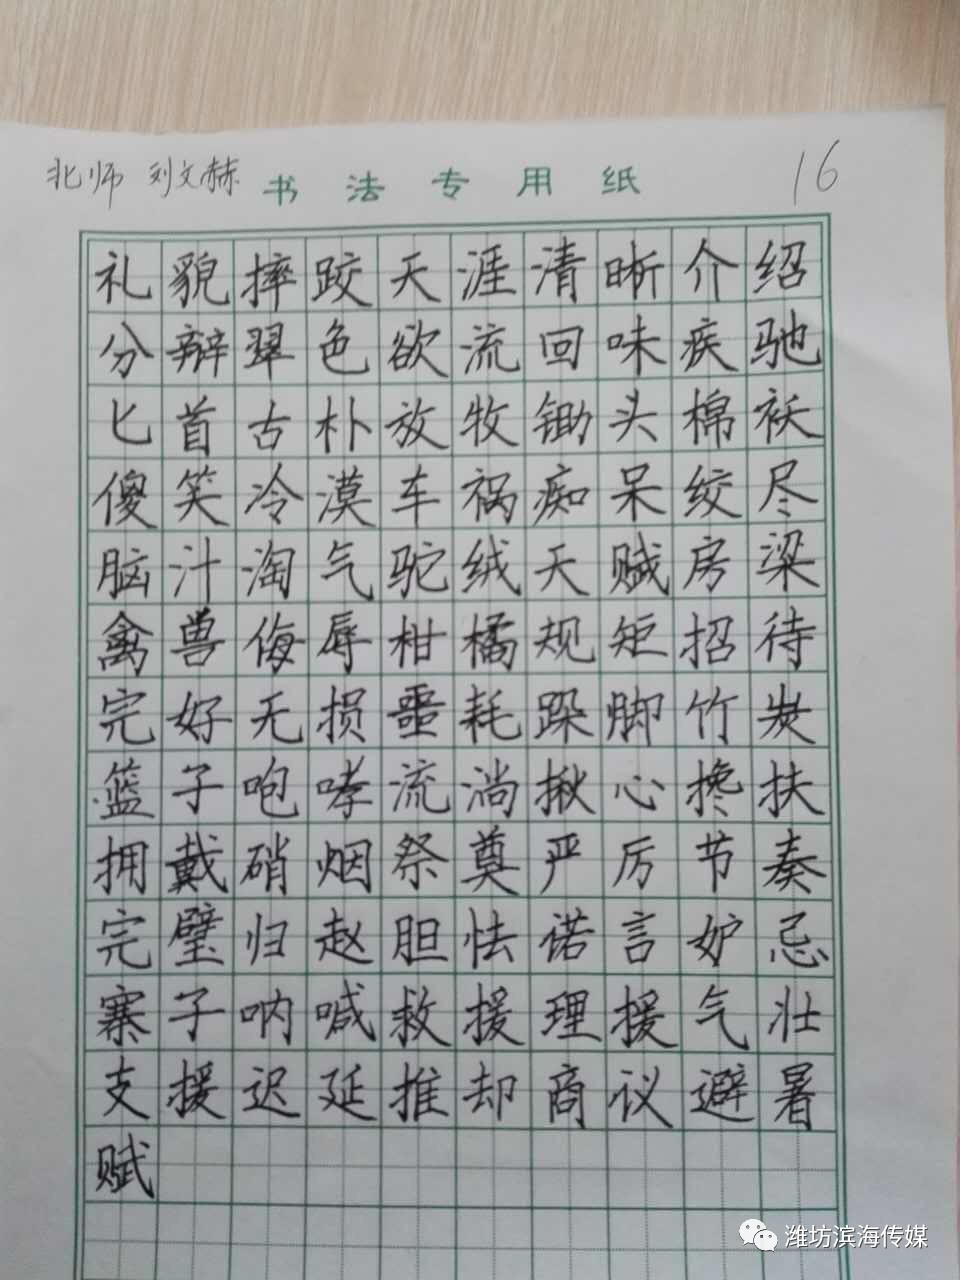 北师 刘文赫 书法专用纸 16
礼貌摔跤天涯清晰介绍
分辩翠色欲流回味疾驰
匕首古朴放牧锄头棉袄
傻笑冷漠车祸痴呆绞尽
脑汁淘气驼绒天赋房梁
禽兽侮辱柑橘规矩招待
完好无损噩耗跺脚竹炭
篮子咆哮流淌揪心搀扶
拥戴硝烟祭奠严厉节奏
完璧归赵胆怯诺言妒忌
寨子呐喊救援理援气壮
支援迟延推却商议避暑
赋
潍坊滨海传媒